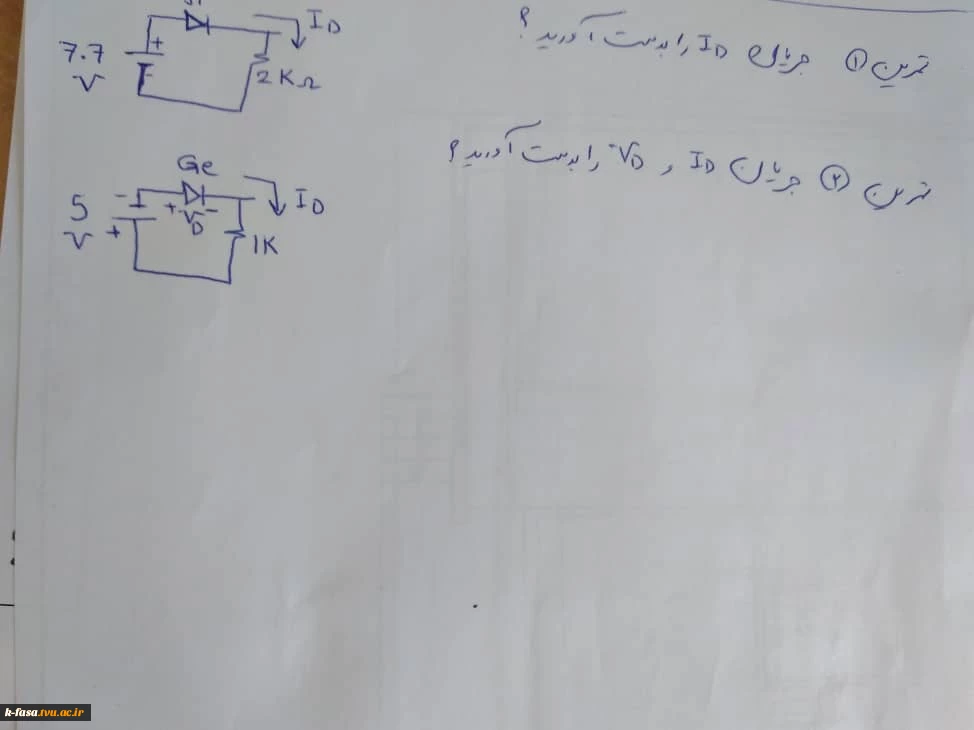 تمرین ① جریان ID را بدست آورید؟
Si
ID
7.7
V
+
2KΩ
تمرین ② جریان ID و VD را بدست آورید؟
Ge
ID
5
V
-
+
+ VD -
1K
k-fasa.tvu.ac.ir